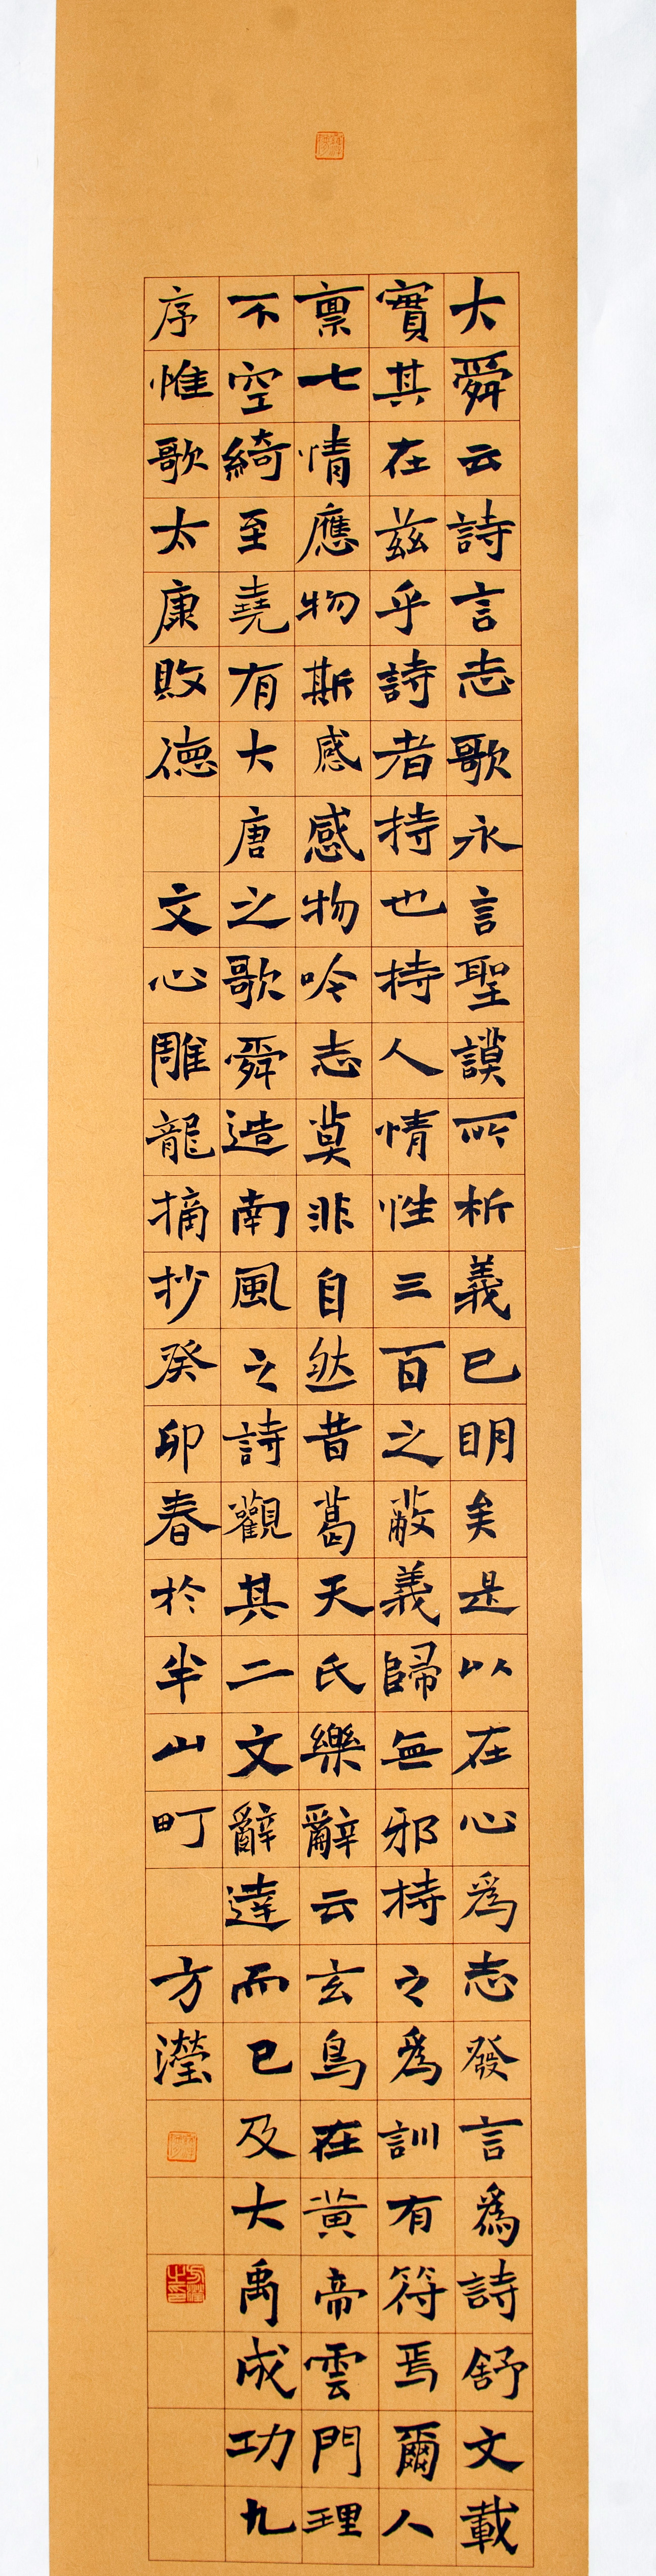 大舜云詩言志歌永言聖謨所析義已明矣是以在心爲志發言爲詩舒文載
實其在茲乎詩者持也持人情性三百之蔽義歸無邪持之爲訓有符焉爾人
禀七情應物斯感感物吟志莫非自然昔葛天氏樂辭云玄鳥在黃帝雲門理
不空綺至堯有大唐之歌舜造南風之詩觀其二文辭達而已及大禹成功九
序惟歌太康敗德 文心雕龍摘抄癸卯春於半山町 方瀅